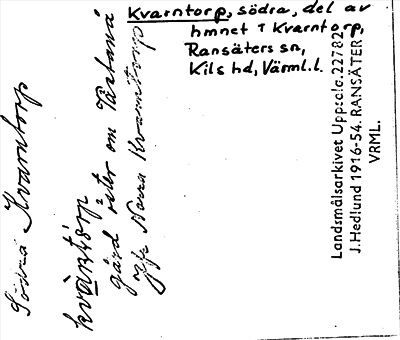 Kvarntorp, södra, del av
hmnet i Kvarntorp,
Ransäters sn,
Kils hd, Värml. l.
Södra Kvarntorp
kvàntórp
gård öster om
Jfr Norra Kvarntorp
Landsmålsarkivet Uppsala. 22782
J. Hedlund 1916-54. RANSÄTER
VRML.